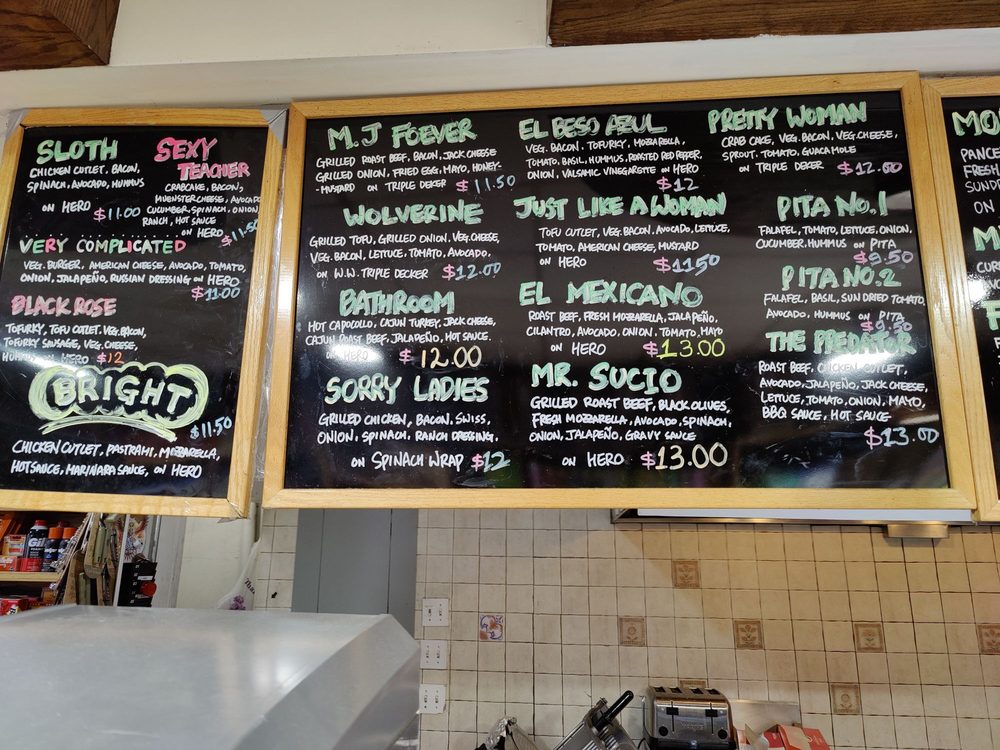 SLOTH
CHICKEN CUTLET, BACON,
SPINACH, AVOCADO, HUMMUS
ON HERO $11.00
SEXY
TEACHER
CRABCAKE, BACON,
MUENSTER CHEESE, AVOCADO
CUCUMBER, SPINACH, ONION,
RANCH, HOT SAUCE
ON HERO $11.50
VERY COMPLICATED
VEG. BURGER, AMERICAN CHEESE, AVOCADO, TOMATO,
ONION, JALAPEÑO, RUSSIAN DRESSING ON HERO
$11.00
BLACK ROSE
TOFURKY, TOFU CUTLET, VEG. BACON,
TOFURKY SAUSAGE, VEG. CHEESE,
HUMMUS ON HERO $12
BRIGHT
$11.50
CHICKEN CUTLET, PASTRAMI, MOZZARELLA,
HOT SAUCE, MARINARA SAUCE, ON HERO
M.J FOEVER
GRILLED ROAST BEEF, BACON, JACK CHEESE
GRILLED ONION, FRIED EGG, MAYO, HONEY-
-MUSTARD ON TRIPLE DEKER $11.50
WOLVERINE
GRILLED TOFU, GRILLED ONION, VEG. CHEESE,
VEG. BACON, LETTUCE, TOMATO, AVOCADO,
ON W.W. TRIPLE DECKER $12.00
BATHROOM
HOT CAPOCOLLO, CAJUN TURKEY, JACK CHEESE,
CAJUN ROAST BEEF, JALAPEÑO, HOT SAUCE.
ON HERO $12.00
SORRY LADIES
GRILLED CHICKEN, BACON, SWISS,
ONION, SPINACH, RANCH DRESSING,
ON SPINACH WRAP $12
EL BESO AZUL
VEG. BACON, TOFURKY, MOZZARELLA,
TOMATO, BASIL, HUMMUS, ROASTED RED PEPER,
ONION, VALSAMIC VINEGARETTE ON HERO
$12
JUST LIKE A WOMAN
TOFU CUTLET, VEG. BACON, AVOCADO, LETTUCE,
TOMATO, AMERICAN CHEESE, MUSTARD
ON HERO $11.50
EL MEXICANO
ROAST BEEF, FRESH MOZZARELLA, JALAPEÑO,
CILANTRO, AVOCADO, ONION, TOMATO, MAYO
ON HERO $13.00
MR. SUCIO
GRILLED ROAST BEEF, BLACK OLIVES,
FRESH MOZZARELLA, AVOCADO, SPINACH,
ONION, JALAPEÑO, GRAVY SAUCE
ON HERO $13.00
PRETTY WOMAN
CRAB CAKE, VEG. BACON, VEG. CHEESE,
SPROUT, TOMATO, GUACAMOLE
ON TRIPLE DEKER $12.50
PITA NO.1
FALAFEL, TOMATO, LETTUCE, ONION,
CUCUMBER, HUMMUS ON PITA
$9.50
PITA NO.2
FALAFEL, BASIL, SUN DRIED TOMATO,
AVOCADO, HUMMUS ON PITA
$9.50
THE PREDATOR
ROAST BEEF, CHICKEN CUTLET,
AVOCADO, JALAPEÑO, JACK CHEESE,
LETTUCE, TOMATO, ONION, MAYO,
BBQ SAUCE, HOT SAUCE
$13.00
PANCE
FRESH
SUND
ON